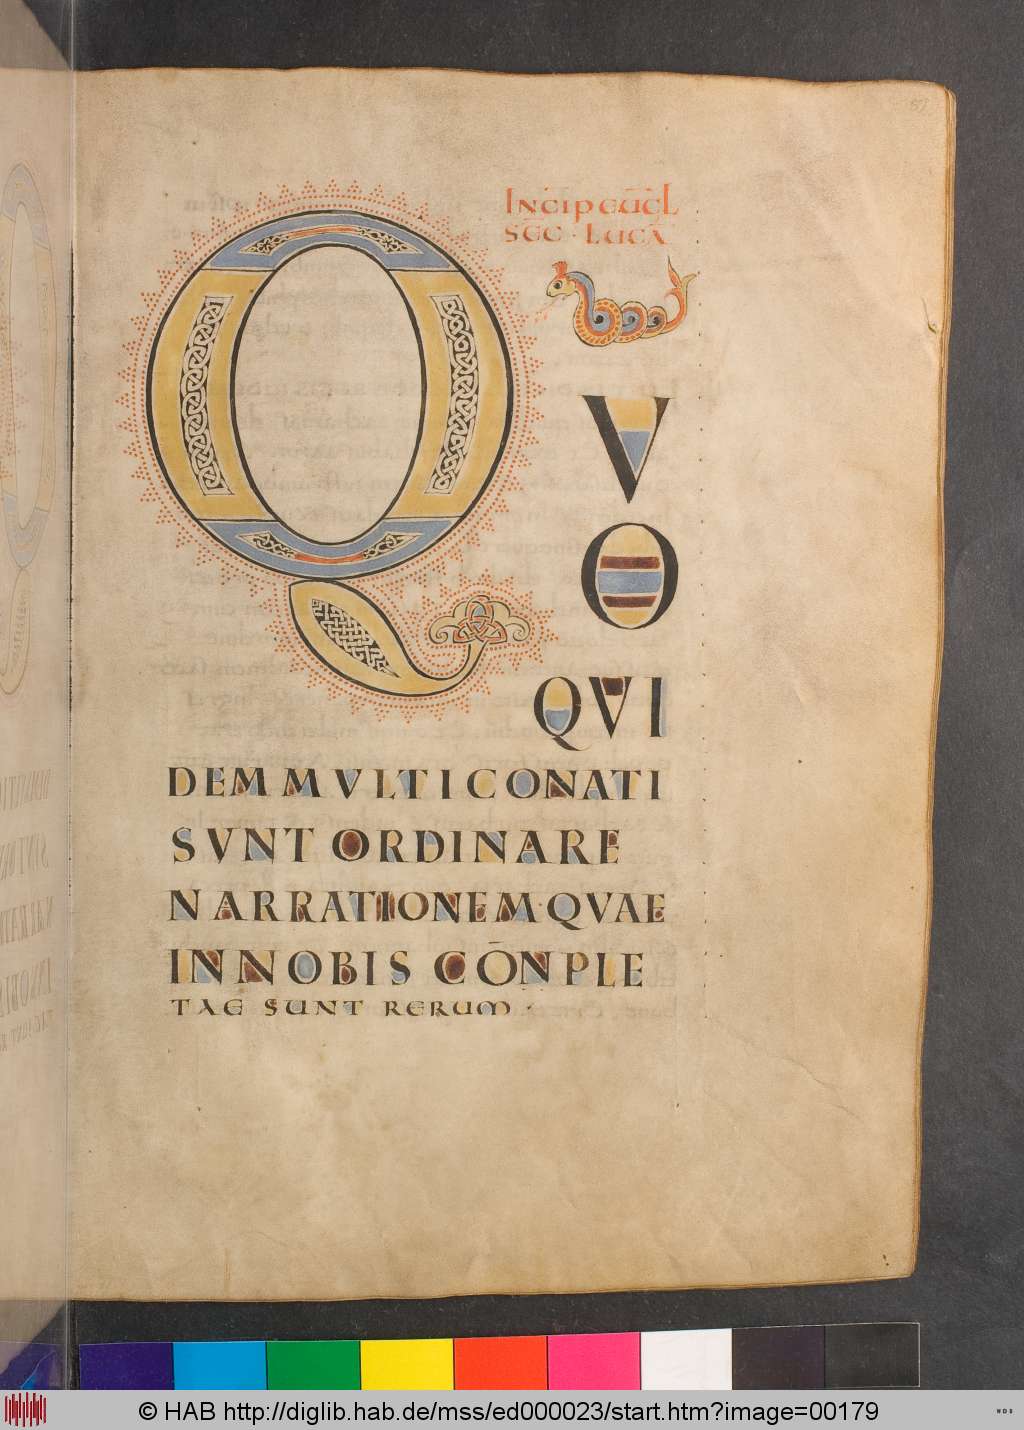 Incip euꞇ̄cl
SEC · LUCĀ
Q
V
O
QVI
DEM MVLTI CONATI
SVNT ORDINARE
NARRATIONEM · QVAE
IN NOBIS CŌNPLE
TAE SUNT RERUM ·
© HAB http://diglib.hab.de/mss/ed000023/start.htm?image=00179